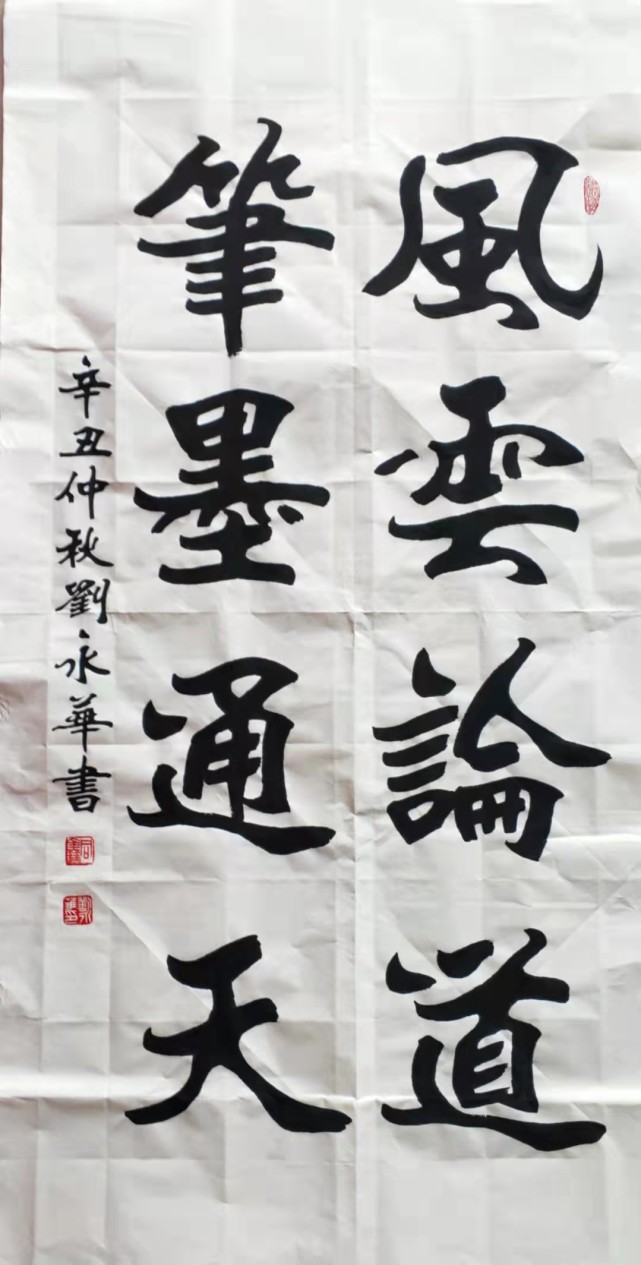 風雲論道
筆墨通天
辛丑仲秋劉永華書